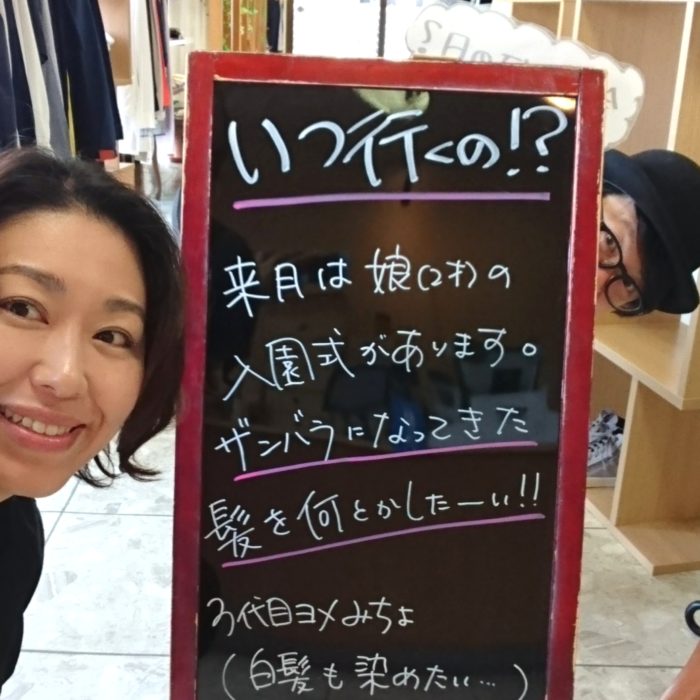 いつ行くの!?
来月は娘(2才)の
入園式があります。
ザンバラになってきた
髪を何とかしたーい!!
3代目ヨメみちよ
(白髪も染めたい…)